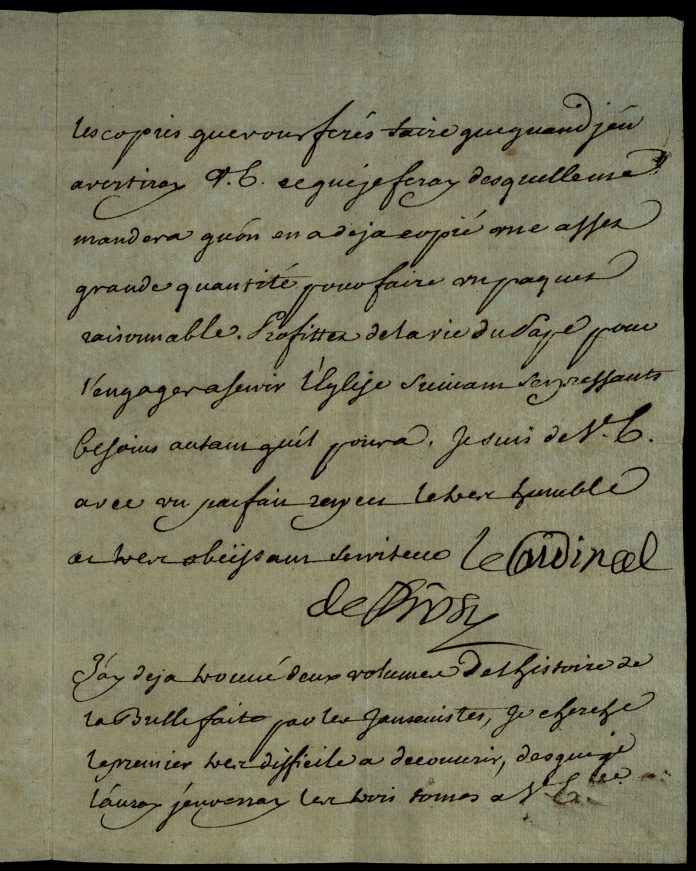 les copies que vous ferés faire que quand j'en
avertiray V. E. ce que je feray des qu'elle me
mandera qu'on en a deja copié une assez
grande quantité pour faire un paquet
raisonnable. Profittez de la vie du Pape pour
l'engager a servir l'Eglise suivant ses pressants
besoins autant qu'il poura. Je suis de V. E.
avec un parfait respect le tres humble
et tres obeïssant serviteur le Cardinal
de
J'ay deja trouvé deux volumes de l'histoire de
la Bulle fait par les Jansenistes, je cherche
le premier tres difficile a decouvrir, des que je
l'auray j'envoiray les trois tomes a V. E.